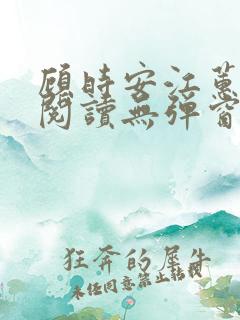 顾時安江蕙
閱讀無彈窗
狂奔的犀牛
未经同意禁止转载